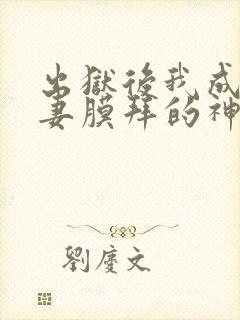 出獄後我成
妻膜拜的神
劉慶文